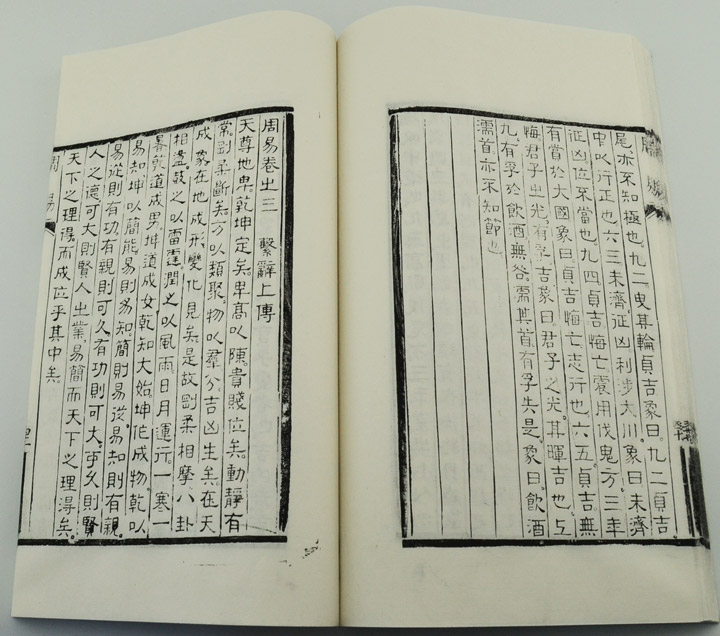 尾亦不知極也九二曳其輪貞吉象曰九二貞吉
中以行正也六三未濟征凶利涉大川象曰未濟
征凶位不當也九四貞吉悔亡震用伐鬼方三年
有賞於大國象曰貞吉悔亡志行也六五貞吉無
悔君子之光有孚吉象曰君子之光其暉吉也上
九有孚於飲酒無咎濡其首有孚失是象曰飲酒
濡首亦不知節也
周易卷之三 繫辭上傳
天尊地卑乾坤定矣卑高以陳貴賤位矣動靜有
常剛柔斷矣方以類聚物以羣分吉凶生矣在天
成象在地成形變化見矣是故剛柔相摩八卦
相盪鼓之以雷霆潤之以風雨日月運行一寒一
暑乾道成男坤道成女乾知大始坤作成物乾以
易知坤以簡能易則易知簡則易從易知則有親
易從則有功有親則可久有功則可大可久則賢
人之德可大則賢人之業易簡而天下之理得矣
天下之理得而成位乎其中矣
周易